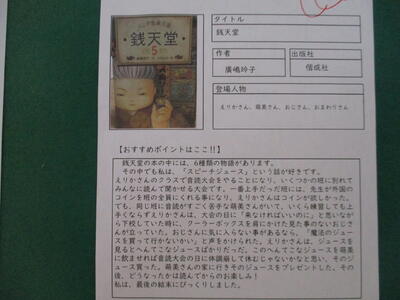 銭天堂
5
タイトル
銭天堂
作者
出版社
廣嶋玲子
偕成社
登場人物
えりかさん、萌美さん、おじさん、おまわりさん
【おすすめポイントはここ!!】
銭天堂の本の中には、6種類の物語があります。
その中でも私は、「スピーチジュース」という話が好きです。
えりかさんのクラスで音読大会をやることになり、いくつかの班に別れて
みんなに読んで聞かせる大会です。一番上手だった班には、先生が外国の
コインを班の全員にくれる事になり、えりかさんはコインが欲しかった。
でも、同じ班に音読がすごく苦手な萌美さんがいて、いくら練習しても上
手くならずえりかさんは、大会の日に「来なければいいのに」と思いなが
ら下校していた時に、クーラーボックスを肩にかけた見た事のないおじさ
んが立っていた。おじさんに気に入らない事があるなら、「魔法のジュー
スを買って行かないかい?」と声をかけられた。えりかさんは、ジュースを
見るとへんてこなジュースばかりだった。このへんてこなジュースを萌美
に飲ませれば音読大会の日に体調崩して休むじゃないかなと思い、そのジ
ュース買った。萌美さんの家に行きそのジュースをプレゼントした。その
後、どうなったかは読んでからのお楽しみ!
私は、最後の結末にびっくりしました。